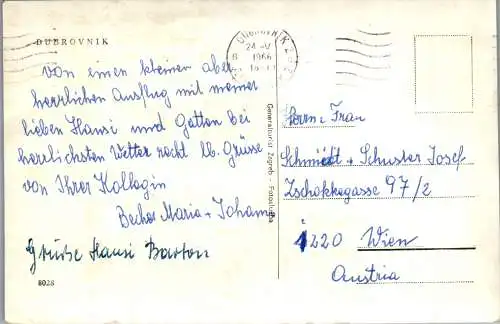 DUBROVNIK
DUBROVNIK 2
24 -V
1966
von einen kleinen aber
herrlichen Ausflug mit meiner
lieben Hansi und Gatten bei
herrlichsten Wetter recht lb. Grüsse
von Ihrer Kollegin
Becher Maria + Johann
Grüsse Hansi Barton
8028
Generalturist Zagreb - Fotoslužba
Herrn u. Frau
Schmidt + Schuster Josef
Zschokkegasse 97/2
1220 Wien
Austria